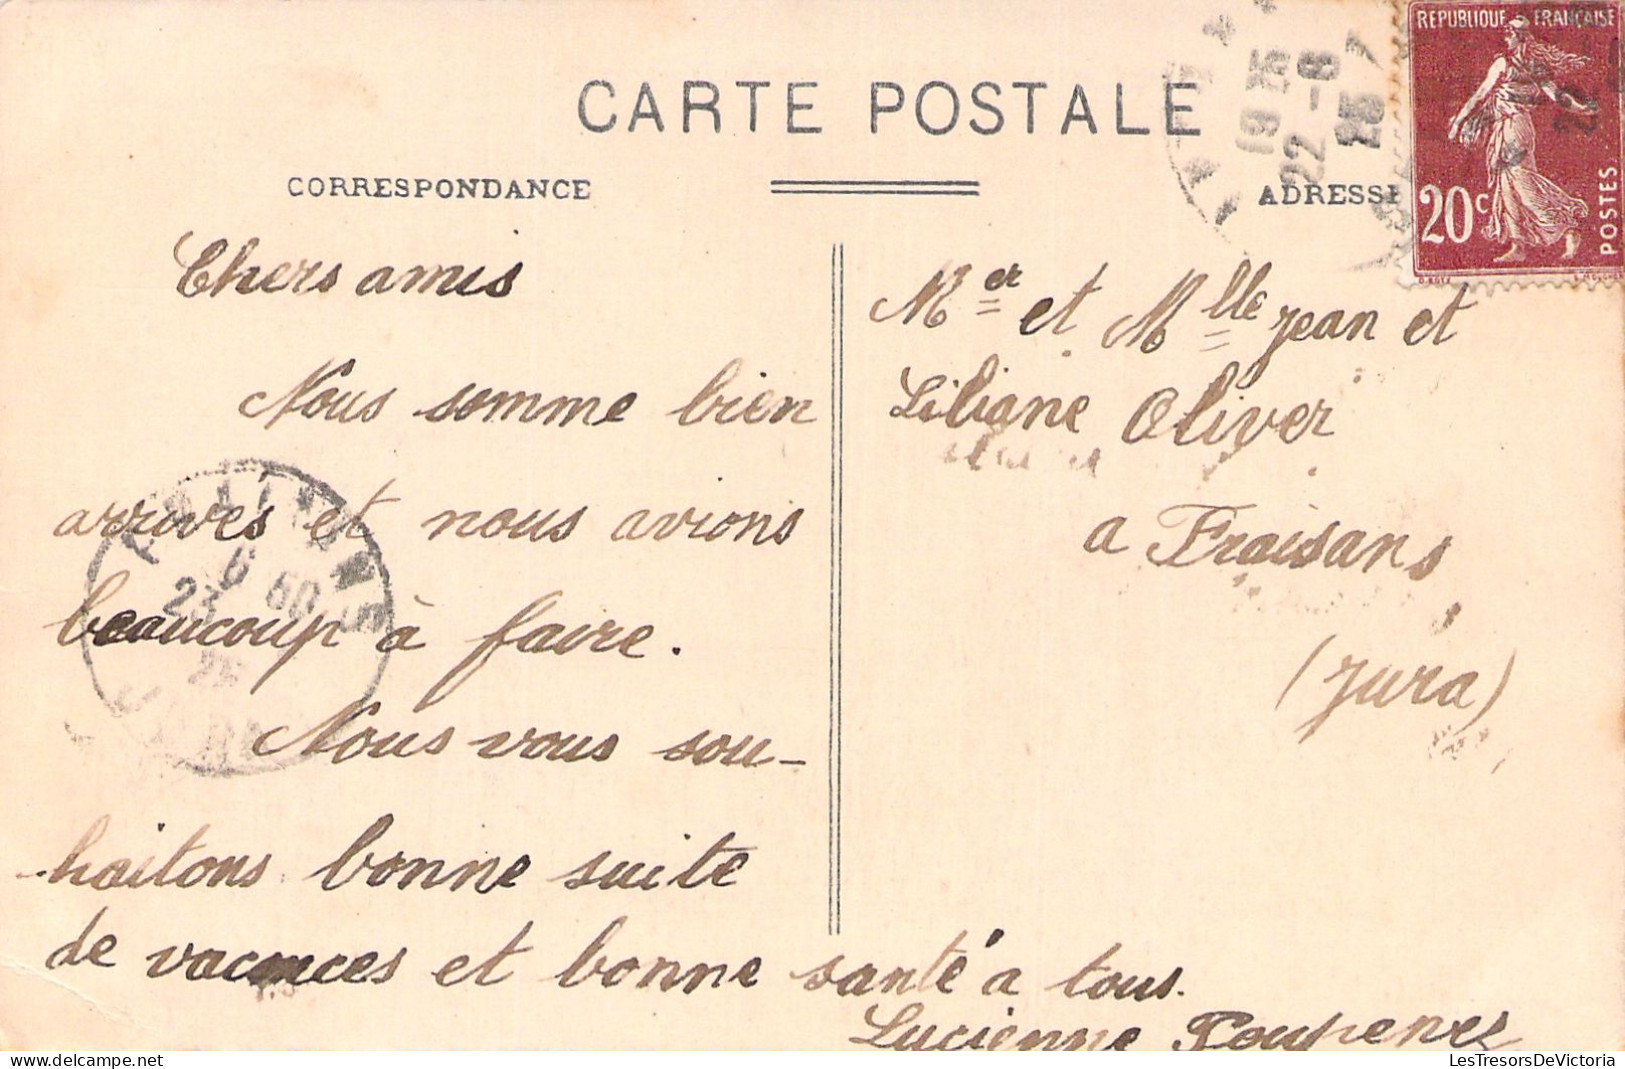 CARTE POSTALE
CORRESPONDANCE
ADRESSE
REPUBLIQUE FRANÇAISE
20c
POSTES
19 35
22 -8
23
Chers amis
Nous somme bien
arrivés et nous avions
beaucoup à faire.
Nous vous sou-
haitons bonne suite
de vacances et bonne santé a tous.
Lucienne
Mer et Mlle jean et
Liliane Oliver
a Fraisans
(jura)
LesTresorsDeVictoria